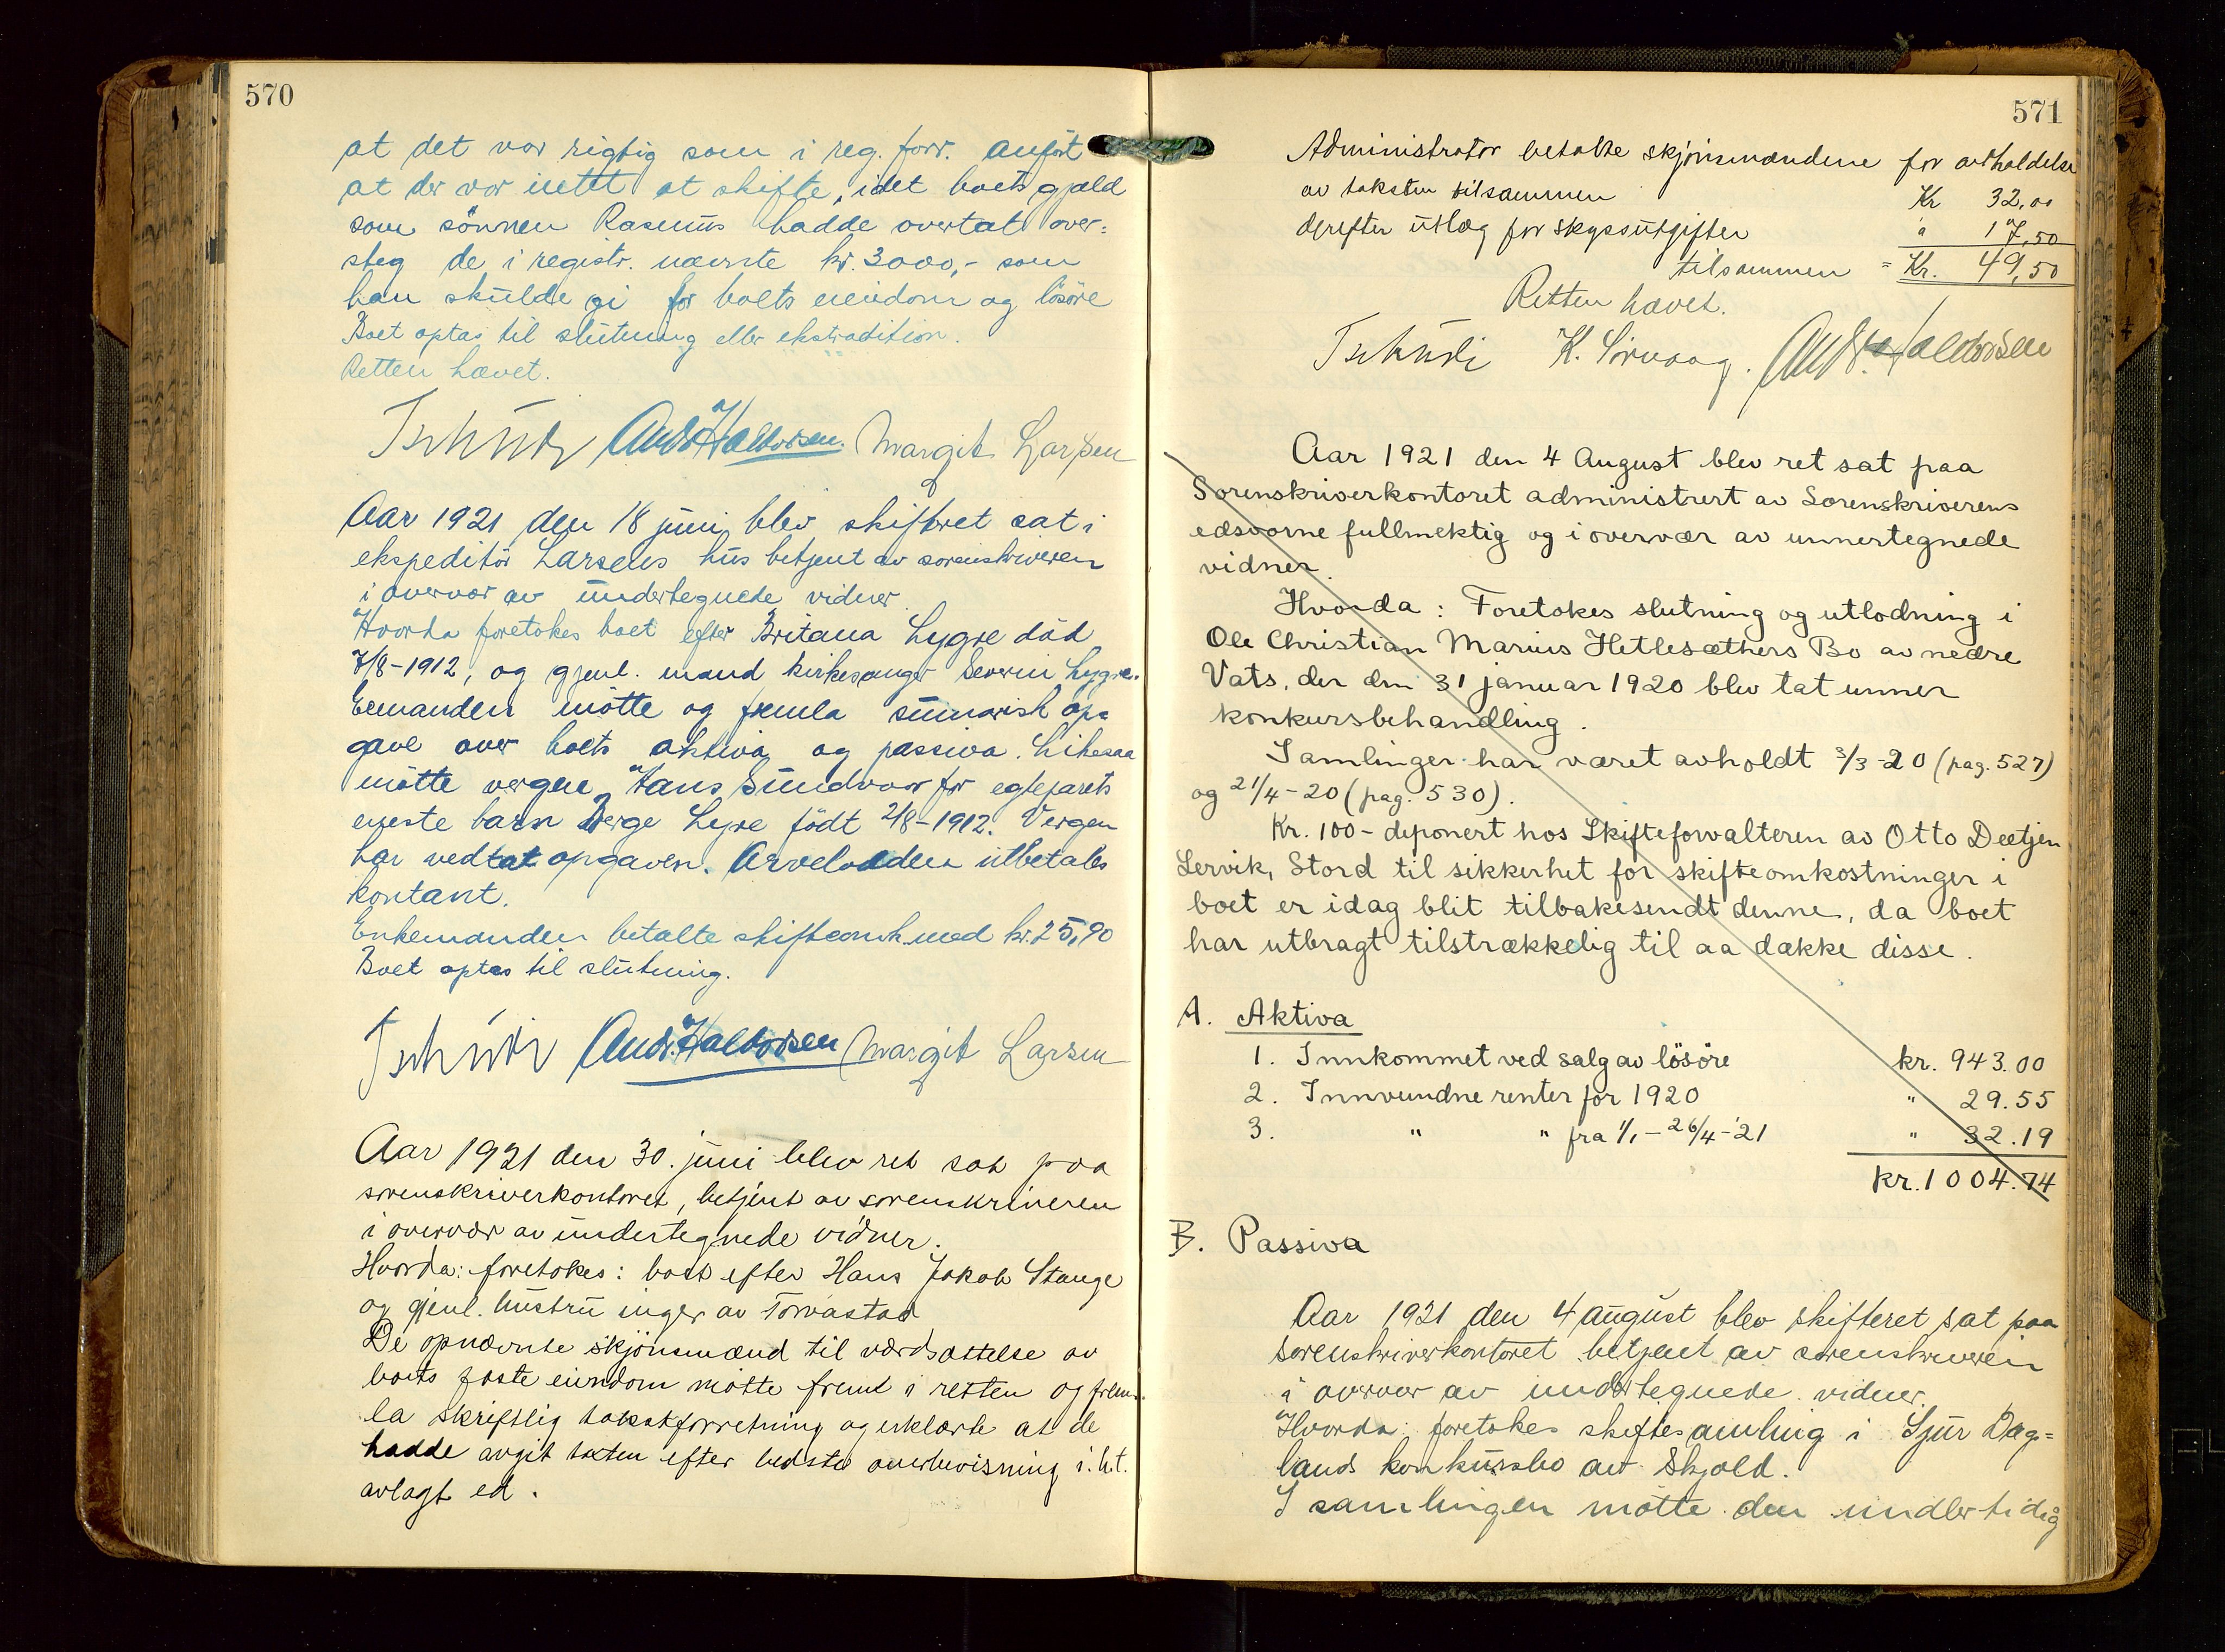 570
at det var rigtig som i reg. forr. anført
at der var intet at skifte, idet boets gjæld
som sønnen Rasmus hadde overtat over-
steg de i registr. nævnte kr. 3000,- som
han skulde gi for boets eiendom og løsøre
Boet optas til slutning eller ekstradition.
Retten hævet.
Tschudi Andr. Halvorsen. Margit Larsen
Aar 1921 den 18 juni blev skifteret sat i
ekspeditør Larsens hus betjent av sorenskriveren
i overvær av undertegnede vidner
Hvorda foretokes boet efter Britana Lygre død
7/8-1912, og gjenl. mand kirkesanger Severin Lygre.
Eemanden møtte og fremla sumarisk op-
gave over boets aktiva og passiva. Likesaa
møtte vergen Hans Sundvor for egteparets
eneste barn Berge Lygre født 2/8-1912. Vergen
har vedtat opgaven. Arvelodden utbetales
kontant.
Enkemanden betalte skifteomk. med kr. 25,90
Boet optas til slutning.
Tschudi Andr. Halvorsen Margit Larsen
Aar 1921 den 30. juni blev ret sat paa
sorenskriverkontoret, betjent av sorenskriveren
i overvær av undertegnede vidner.
Hvorda: foretokes: boet efter Hans Jakob Stange
og gjenl. hustru Inger av Torvastad
De opnævnte skjønsmænd til værdsættelse av
boets faste eiendom møtte frem i retten og frem-
la skriftlig takstforretning og erklærte at de
hadde avgit taksten efter bedste overbevisning i. h.t.
avlagt ed.
571
Administrator betalte skjønsmændene for avholdelse
av taksten tilsammen Kr 32,00
derefter utlæg for skyssutgifter " 17,50
tilsammen = Kr. 49,50
Retten hævet.
Tschudi K. Sørvaag. Andr. Halvorsen
Aar 1921 den 4 August blev ret sat paa
Sorenskriverkontoret administrert av Sorenskriverens
edsvorne fullmektig og i overvær av unnertegnede
vidner.
Hvorda: Foretokes slutning og utlodning i
Ole Christian Marius Hetlesæthers Bo av nedre
Vats, der den 31 januar 1920 blev tat unner
konkursbehandling.
Samlinger har været avholdt 3/3-20 (pag. 527)
og 21/4-20 (pag. 530).
Kr. 100- deponert hos Skifteforvalteren av Otto Deetjen
Lervik, Stord til sikkerhet for skifteomkostninger i
boet er idag blit tilbakesendt denne, da boet
har utbragt tilstrækkelig til aa dække disse.
A. Aktiva
1. Innkommet ved salg av løsøre kr. 943.00
2. Innvundne renter for 1920 " 29.55
3. " " fra 1/1 - 26/4-'21 " 32.19
kr. 1004.74
B. Passiva
Aar 1921 den 4 august blev skifteret sat paa
sorenskriverkontoret betjent av sorenskriveren
i overvær av undertegnede vidner.
Hvorda: foretokes skiftesamling i Sjur Dag-
lands konkursbo av Skjold.
I samlingen møtte den midlertidig